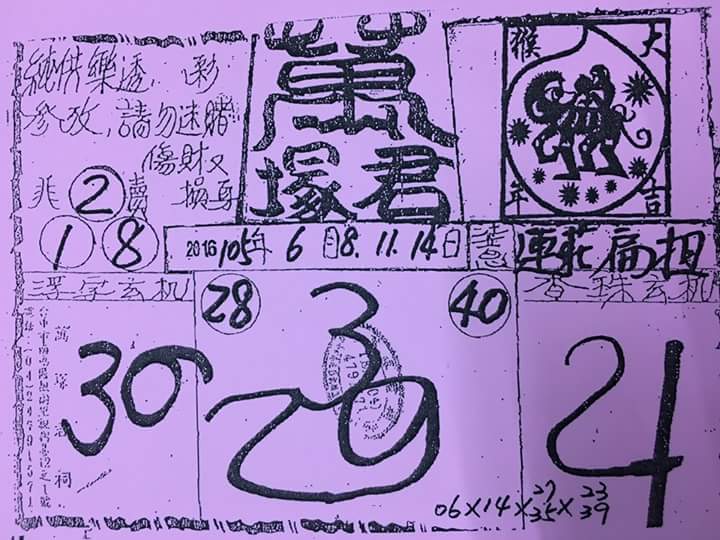 純供樂透、彩
參改,請勿迷賭
傷財又
損身
非②賣
① ⑧
萬
塚君
猴 大
年 吉
2016 105年 6月8.11.14日
連莊扁担
浮字玄机
香珠玄机
28
40
30
3
29
24
萬塚君祠
06×14×27 35×23 39